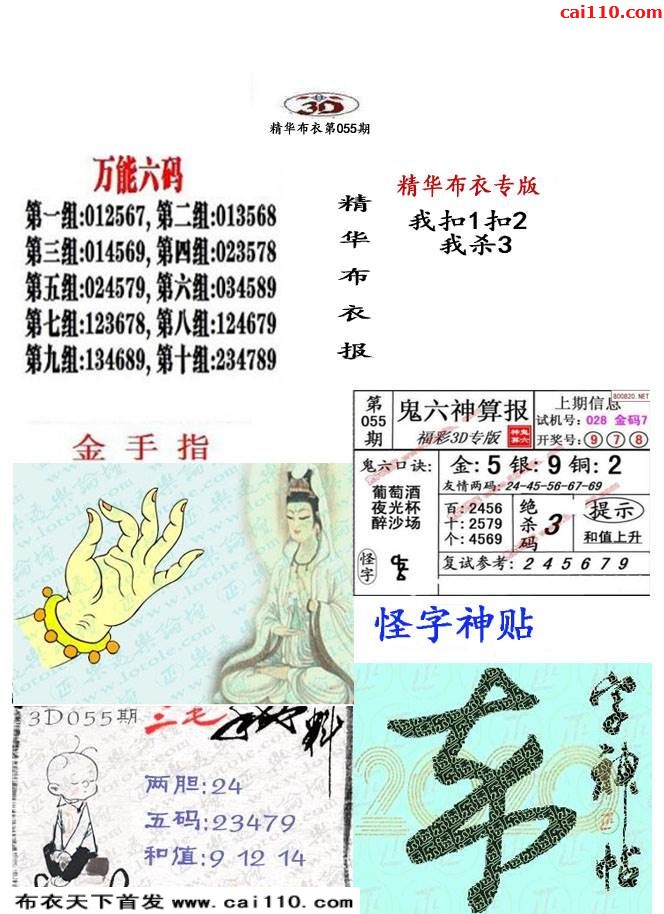 cai110.com
3D
精华布衣第055期
万能六码
第一组:012567, 第二组:013568
第三组:014569, 第四组:023578
第五组:024579, 第六组:034589
第七组:123678, 第八组:124679
第九组:134689, 第十组:234789
精华布衣报
精华布衣专版
我扣1扣2
我杀3
金手指
第055期
鬼六神算报
福彩3D专版
上期信息
800820.NET
试机号: 028 金码7
开奖号: 9 7 8
鬼六口诀:
葡萄酒
夜光杯
醉沙场
怪字
金: 5 银: 9 铜: 2
友情两码: 24-45-56-67-69
百: 2456
十: 2579
个: 4569
绝杀码 3
提示
和值上升
复试参考: 2 4 5 6 7 9
怪字神贴
字神帖
2020
3D055期
三毛
两胆:24
五码:23479
和值:9 12 14
布衣天下首发 www.cai110.com